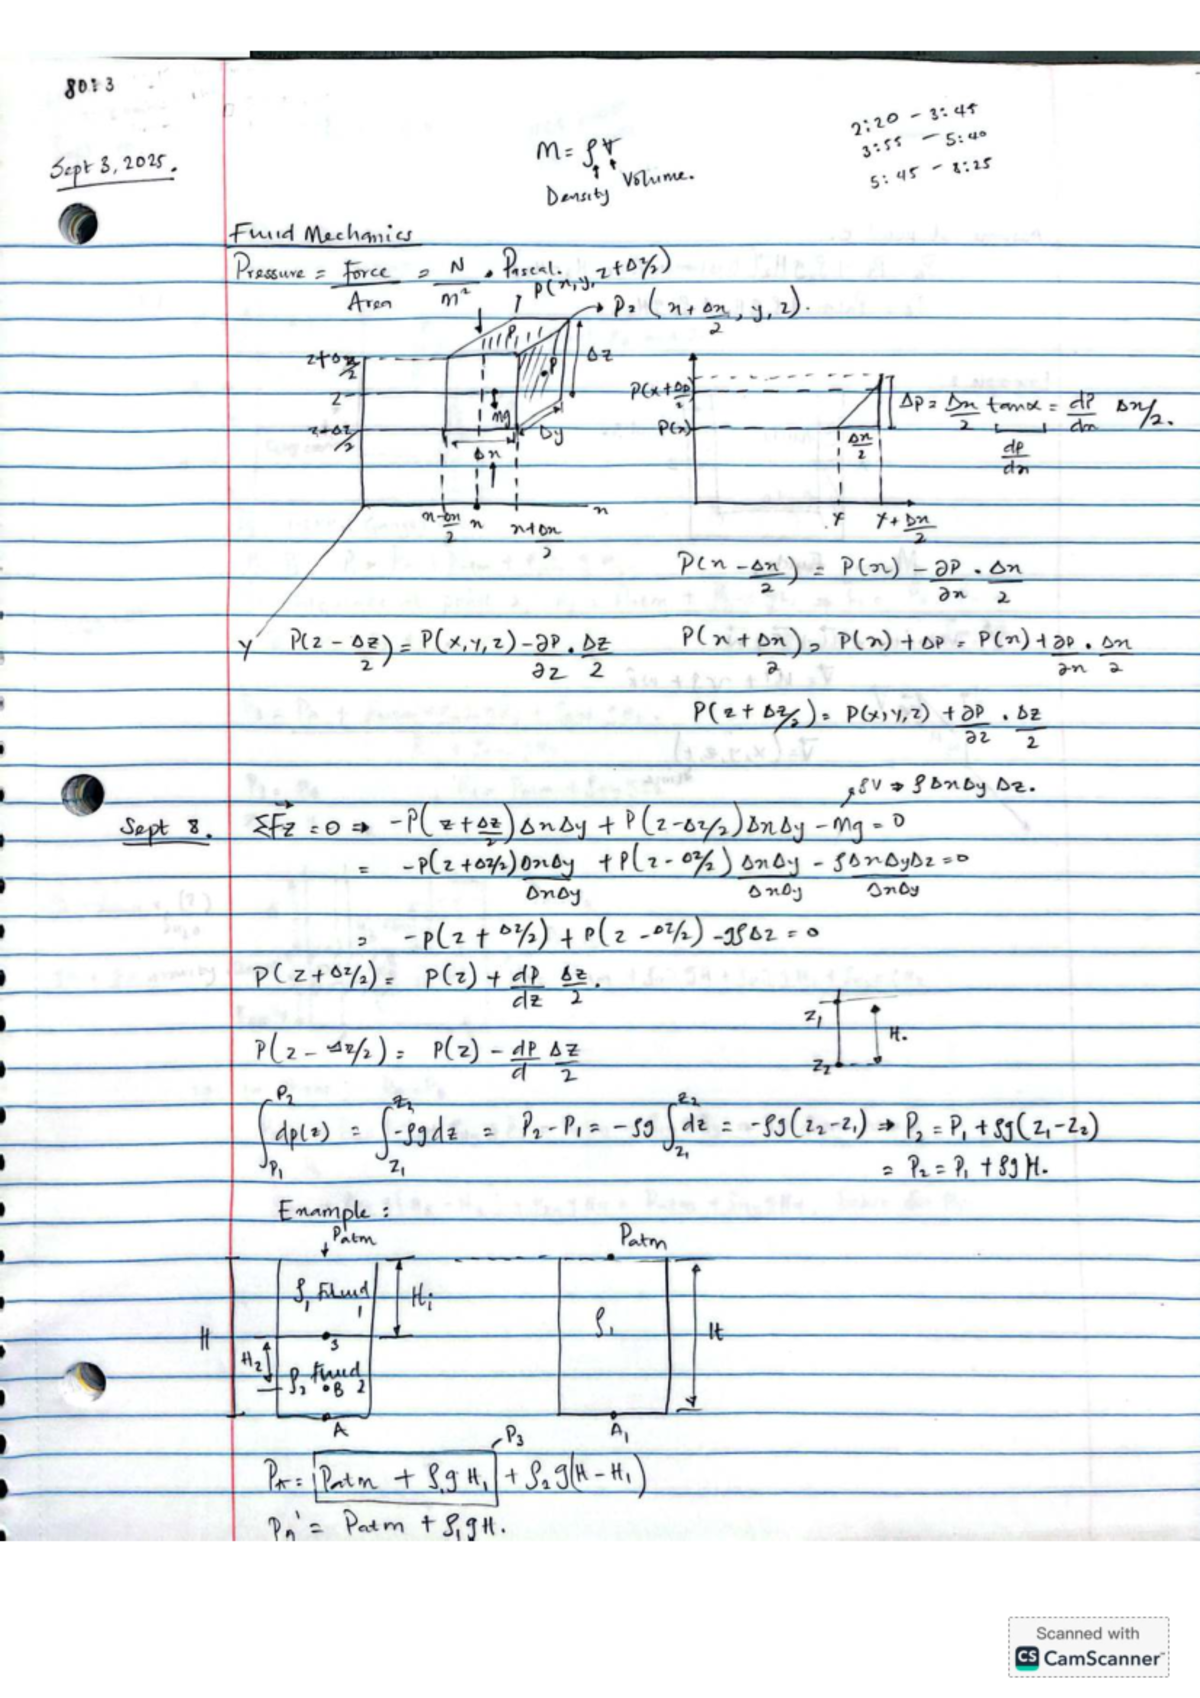 80:3
Sept 3, 2025.
M = ρV
Density Volume.
2:20 - 3:45
3:55 - 5:40
5:45 - 8:25
Fluid Mechanics
Pressure = Force/Area = N/m² = Pascal.
P(x, y, z+Δz/2)
P₂ (x+Δx/2, y, z).
P₁
P
z+Δz/2
z
z+Δz/2
mg
Δz
Δy
Δx
x-Δx/2 x x+Δx/2 x
Y
P(x+Δp/2)
P(x)
Δx/2
x x+Δx/2
ΔP = Δx/2 tanα = dp/dx Δx/2.
dp/dx
P(x - Δx/2) = P(x) - ∂P/∂x · Δx/2
P(z - Δz/2) = P(x,y,z) - ∂P/∂z · Δz/2
P(x + Δx/2) = P(x) + ΔP = P(x) + ∂P/∂x · Δx/2
P(z + Δz/2) = P(x,y,z) + ∂P/∂z · Δz/2
ρV ⇒ ρΔxΔyΔz.
Sept 8.
ΣFz = 0 ⇒ -P(z+Δz/2)ΔxΔy + P(z-Δz/2)ΔxΔy - Mg = 0
= -P(z+Δz/2)ΔxΔy/ΔxΔy + P(z-Δz/2)ΔxΔy/ΔxΔy - ρΔxΔyΔz/ΔxΔy = 0
= -P(z+Δz/2) + P(z-Δz/2) - gρΔz = 0
P(z+Δz/2) = P(z) + dp/dz Δz/2.
P(z-Δz/2) = P(z) - dp/d Δz/2
z₁
H.
z₂
∫P₁P₂ dp(z) = ∫z₁z₂ -ρgdz = P₂-P₁ = -ρg∫z₁z₂ dz = -ρg(z₂-z₁) ⇒ P₂ = P₁ + ρg(z₁-z₂)
= P₂ = P₁ + ρgH.
Example:
Patm
Patm
ρ₁ Fluid 1
H₁
ρ₁
H
H
3
H₂
ρ₂ Fluid 2
B
A
A₁
P₃
PA = Patm + ρ₁gH₁ + ρ₂g(H-H₁)
PA' = Patm + ρ₁gH.
Scanned with
CS CamScanner